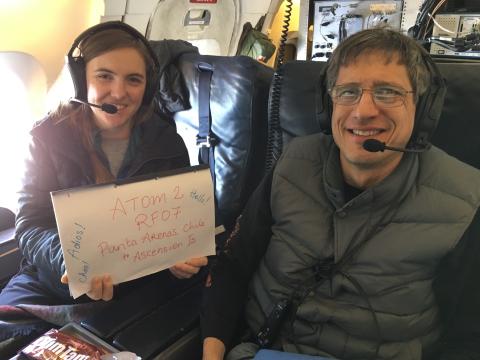 ATOM 2
Hello!
RF07
Punta Arenas, Chile
to Ascension Is
Adios!
Ciao!